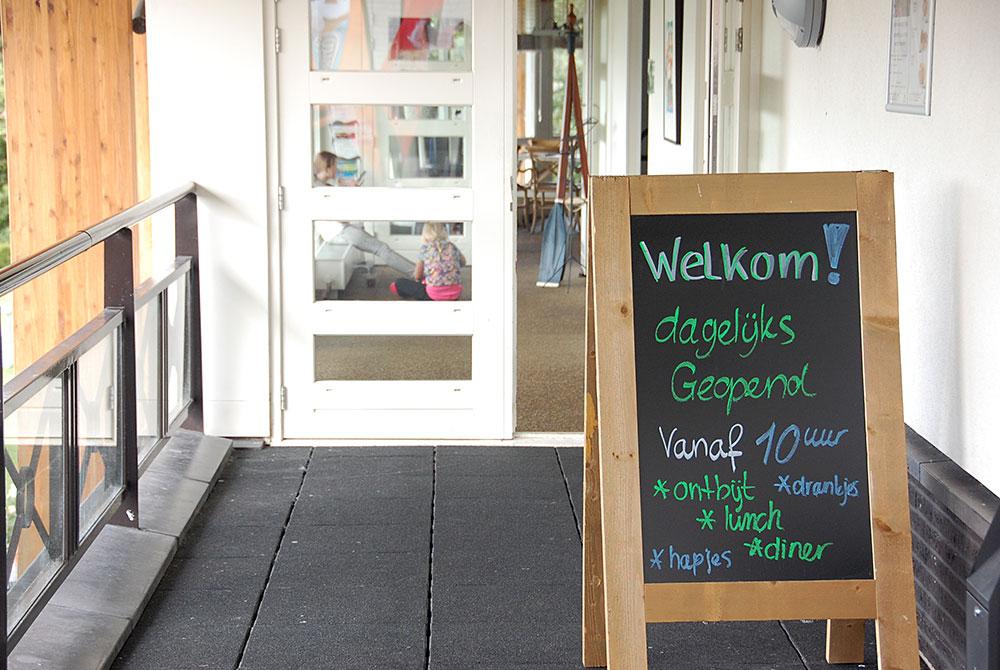 Welkom!
dagelijks
Geopend
Vanaf 10 uur
*ontbijt *drankjes
*lunch
*diner
*hapjes